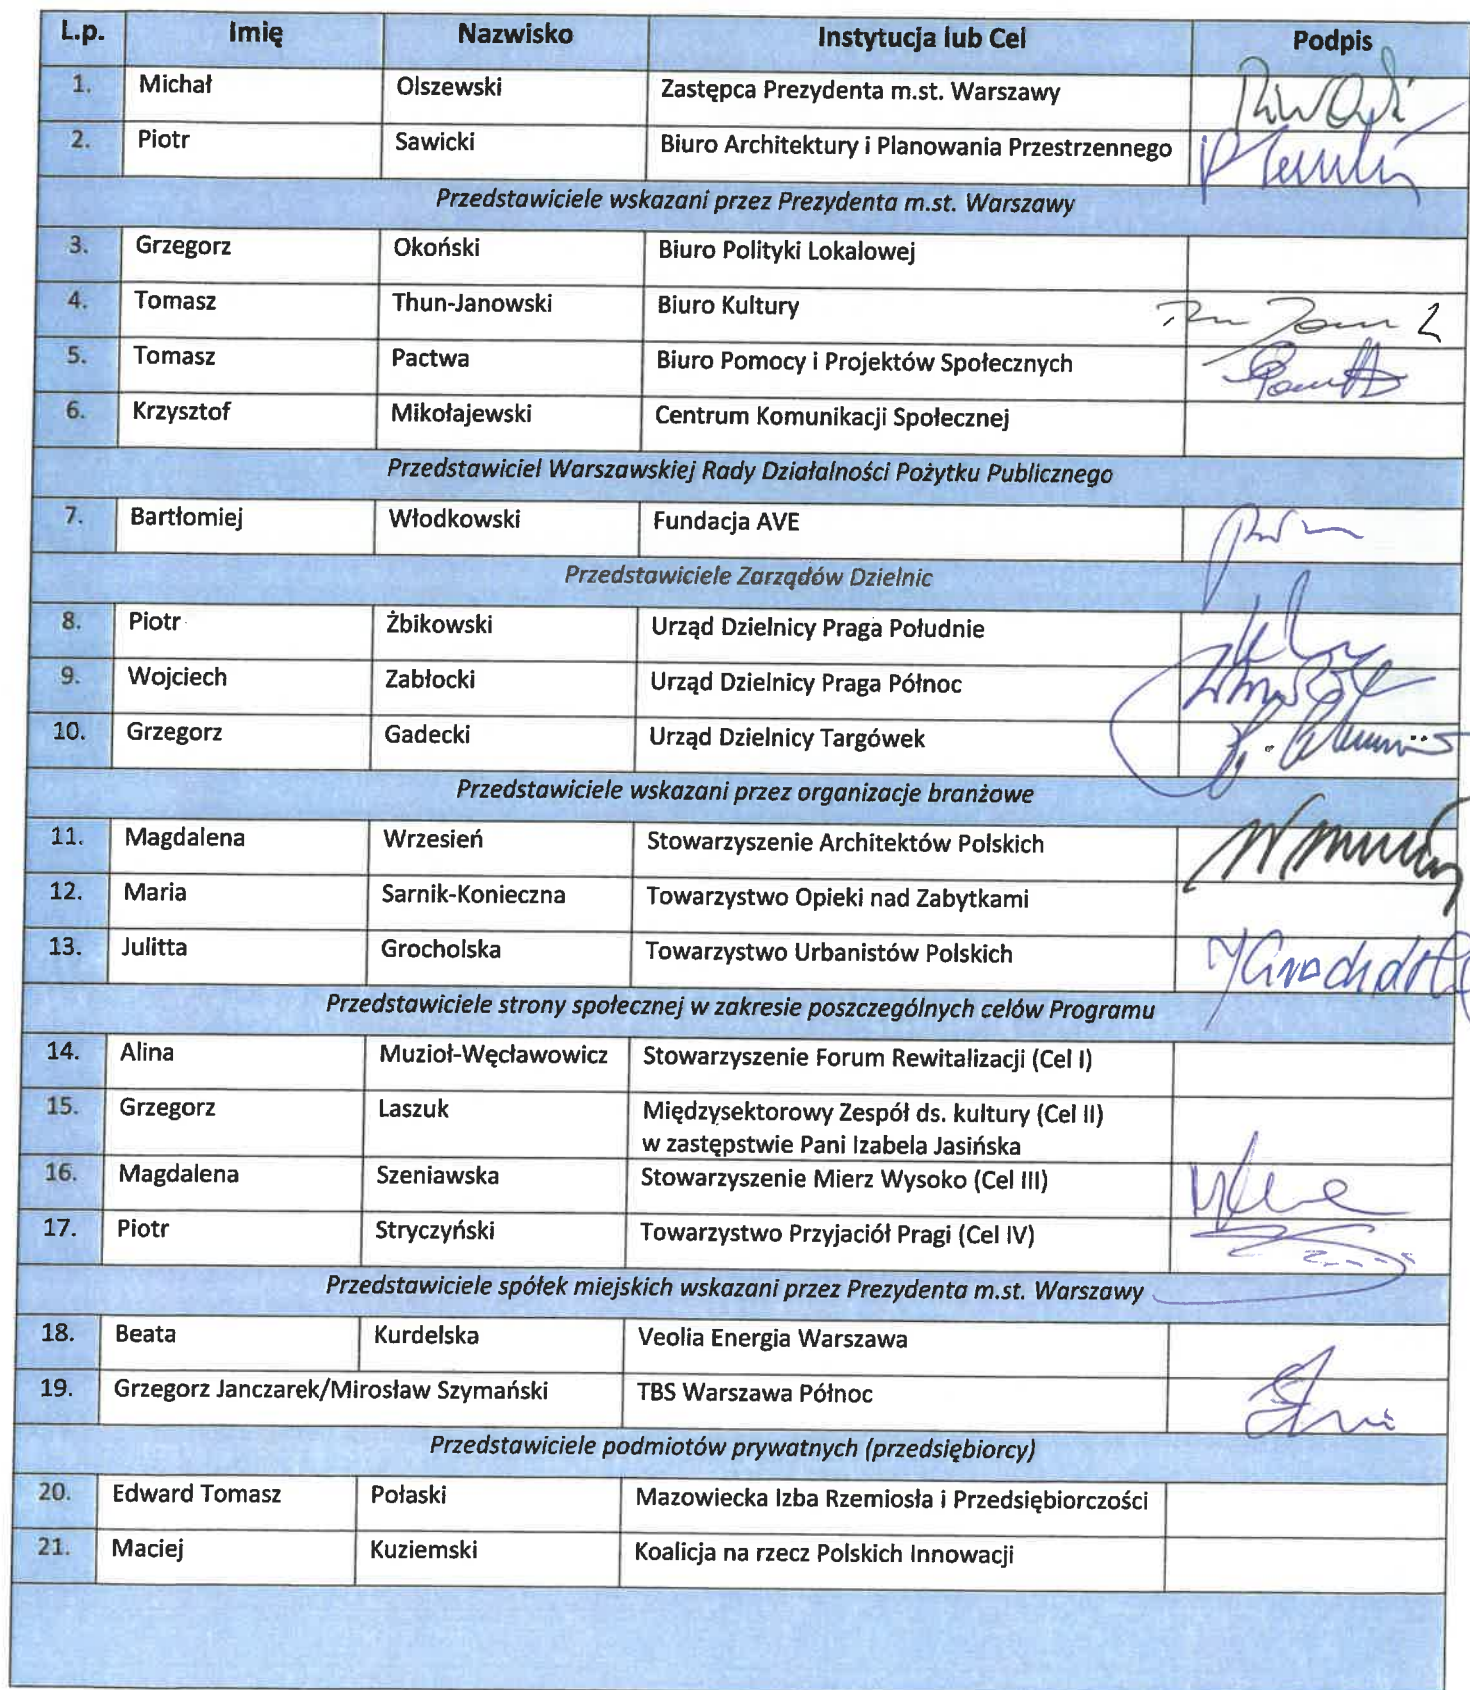 L.p. Imię Nazwisko Instytucja lub Cel Podpis
1. Michał Olszewski Zastępca Prezydenta m.st. Warszawy
2. Piotr Sawicki Biuro Architektury i Planowania Przestrzennego
Przedstawiciele wskazani przez Prezydenta m.st. Warszawy
3. Grzegorz Okoński Biuro Polityki Lokalowej
4. Tomasz Thun-Janowski Biuro Kultury
5. Tomasz Pactwa Biuro Pomocy i Projektów Społecznych
6. Krzysztof Mikołajewski Centrum Komunikacji Społecznej
Przedstawiciel Warszawskiej Rady Działalności Pożytku Publicznego
7. Bartłomiej Włodkowski Fundacja AVE
Przedstawiciele Zarządów Dzielnic
8. Piotr Żbikowski Urząd Dzielnicy Praga Południe
9. Wojciech Zabłocki Urząd Dzielnicy Praga Północ
10. Grzegorz Gadecki Urząd Dzielnicy Targówek
Przedstawiciele wskazani przez organizacje branżowe
11. Magdalena Wrzesień Stowarzyszenie Architektów Polskich
12. Maria Sarnik-Konieczna Towarzystwo Opieki nad Zabytkami
13. Julitta Grocholska Towarzystwo Urbanistów Polskich
Przedstawiciele strony społecznej w zakresie poszczególnych celów Programu
14. Alina Muzioł-Węcławowicz Stowarzyszenie Forum Rewitalizacji (Cel I)
15. Grzegorz Laszuk Międzysektorowy Zespół ds. kultury (Cel II)
w zastępstwie Pani Izabela Jasińska
16. Magdalena Szeniawska Stowarzyszenie Mierz Wysoko (Cel III)
17. Piotr Stryczyński Towarzystwo Przyjaciół Pragi (Cel IV)
Przedstawiciele spółek miejskich wskazani przez Prezydenta m.st. Warszawy
18. Beata Kurdelska Veolia Energia Warszawa
19. Grzegorz Janczarek/Mirosław Szymański TBS Warszawa Północ
Przedstawiciele podmiotów prywatnych (przedsiębiorcy)
20. Edward Tomasz Połaski Mazowiecka Izba Rzemiosła i Przedsiębiorczości
21. Maciej Kuziemski Koalicja na rzecz Polskich Innowacji